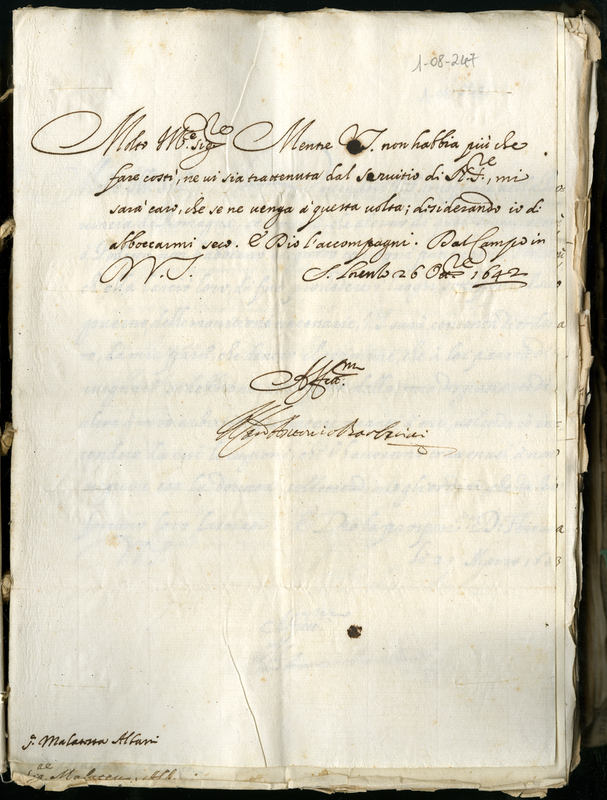 1-08-247
Molto Ill.re Sig.re Mentre V.S. non habbia più che
fare costì, ne vi sia trattenuta dal servitio di N. S.re, mi
sarà caro, che se ne venga à questa volta; disiderando io di
abboccarmi seco. E Dio l'accompagni. Dal Campo in
V. S. S. Lorento 26 Ott.re 1642
Aff.mo
Antonio Barberini
S.r Malatesta Albani